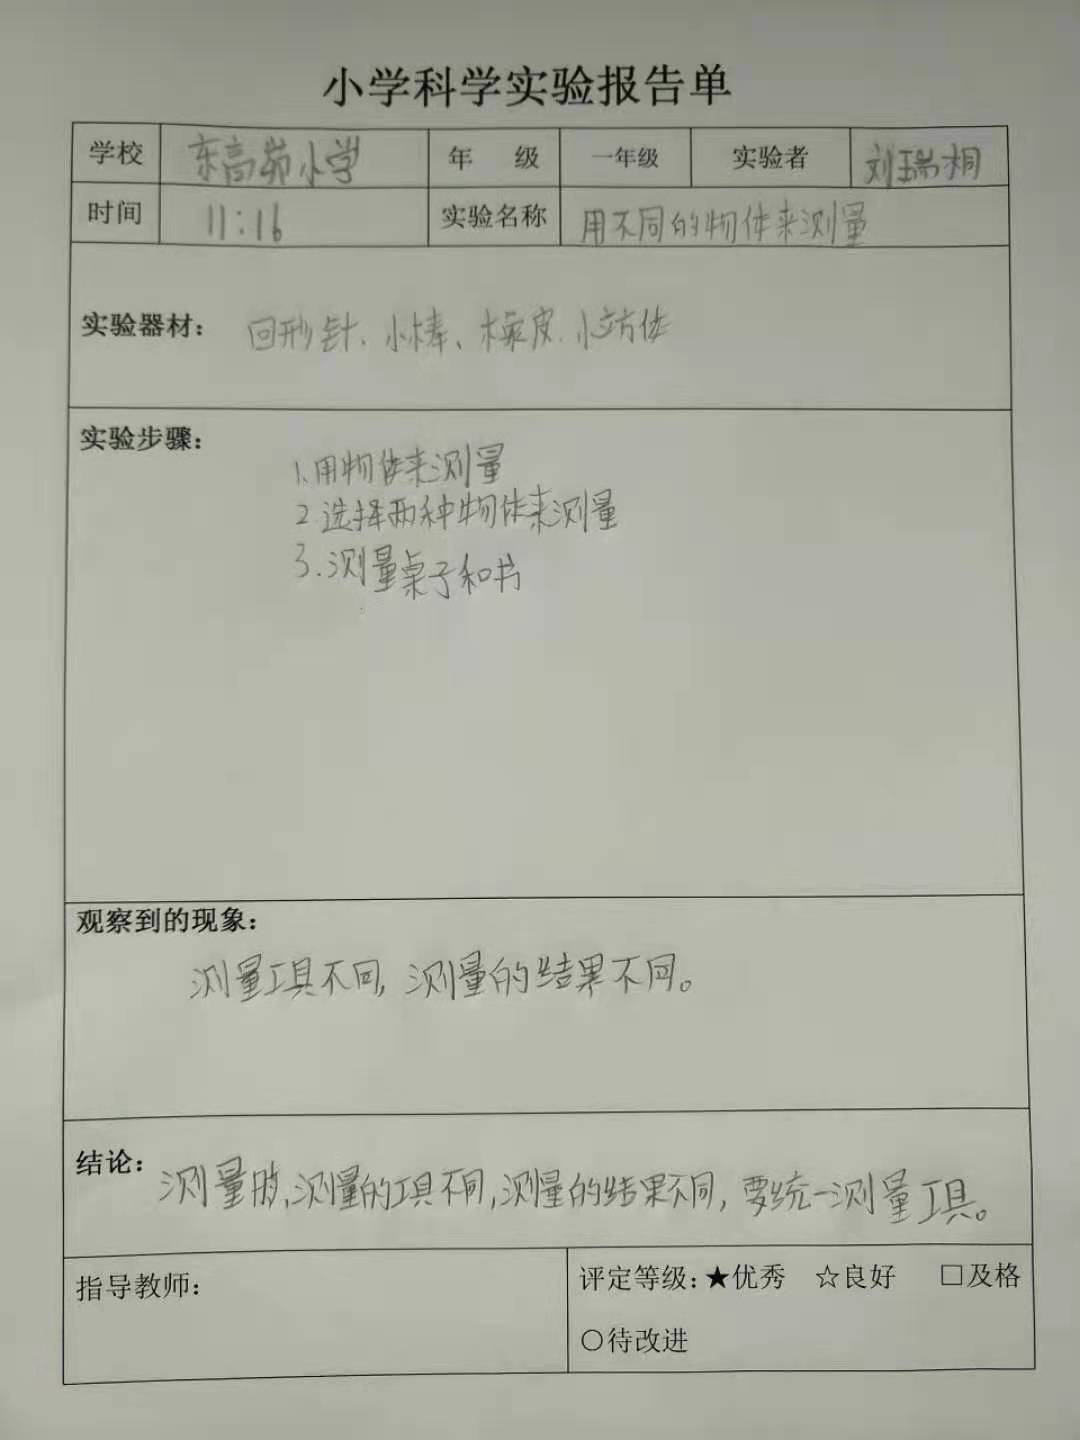 小学科学实验报告单
学校 东高苑小学 年 级 一年级 实验者 刘瑞桐
时间 11:16 实验名称 用不同的物体来测量
实验器材: 回形针、小棒、橡皮、小立方体
实验步骤:
1.用物体来测量
2.选择两种物体来测量
3.测量桌子和书
观察到的现象:
测量工具不同,测量的结果不同。
结论: 测量时,测量的工具不同,测量的结果不同,要统一测量工具。
指导教师: 评定等级:★优秀 ☆良好 □及格
○待改进